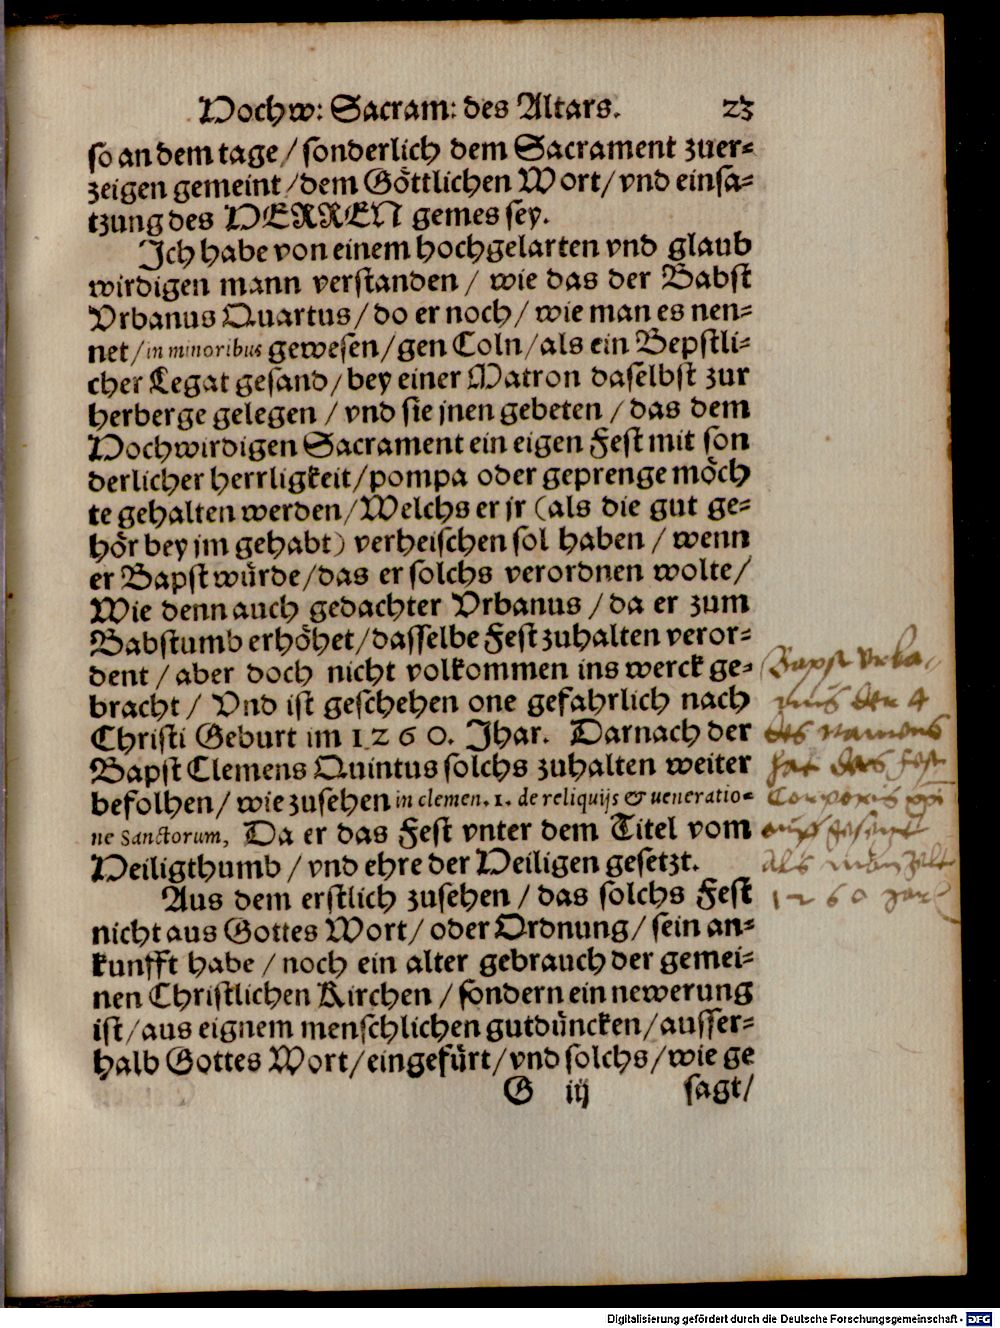 Hochw: Sacram: des Altars. 23
so an dem tage / sonderlich dem Sacrament zuer-
zeigen gemeint / dem Göttlichen Wort / vnd einsa-
tzung des HERREN gemes sey.
Ich habe von einem hochgelarten vnd glaub
wirdigen mann verstanden / wie das der Babst
Vrbanus Quartus / do er noch / wie man es nen-
net / in minoribus gewesen / gen Coln / als ein Bepstli-
cher Legat gesand / bey einer Matron daselbst zur
herberge gelegen / vnd sie jnen gebeten / das dem
Hochwirdigen Sacrament ein eigen Fest mit son
derlicher herrligkeit / pompa oder geprenge möch
te gehalten werden / Welchs er jr (als die gut ge-
hör bey jm gehabt) verheischen sol haben / wenn
er Bapst würde / das er solchs verordnen wolte /
Wie denn auch gedachter Vrbanus / da er zum
Babstumb erhöhet / dasselbe Fest zuhalten veror-
dent / aber doch nicht volkommen ins werck ge-
bracht / Vnd ist geschehen one gefahrlich nach
Christi Geburt im 1260. Jhar. Darnach der
Bapst Clemens Quintus solchs zuhalten weiter
befolhen / wie zusehen in clemen. 1. de reliquijs & ueneratio-
ne Sanctorum, Da er das Fest vnter dem Titel vom
Heiligthumb / vnd ehre der Heiligen gesetzt.
Aus dem erstlich zusehen / das solchs Fest
nicht aus Gottes Wort / oder Ordnung / sein an-
kunfft habe / noch ein alter gebrauch der gemei-
nen Christlichen Kirchen / sondern ein newerung
ist / aus eignem menschlichen gutdüncken / ausser-
halb Gottes Wort / eingefürt / vnd solchs / wie ge
G iij sagt /
Bapst Vrba-
nus der 4
des namens
hat das fest
Corporis
auffgesetzt
als man zelt
1260 jar
Digitalisierung gefördert durch die Deutsche Forschungsgemeinschaft - DFG